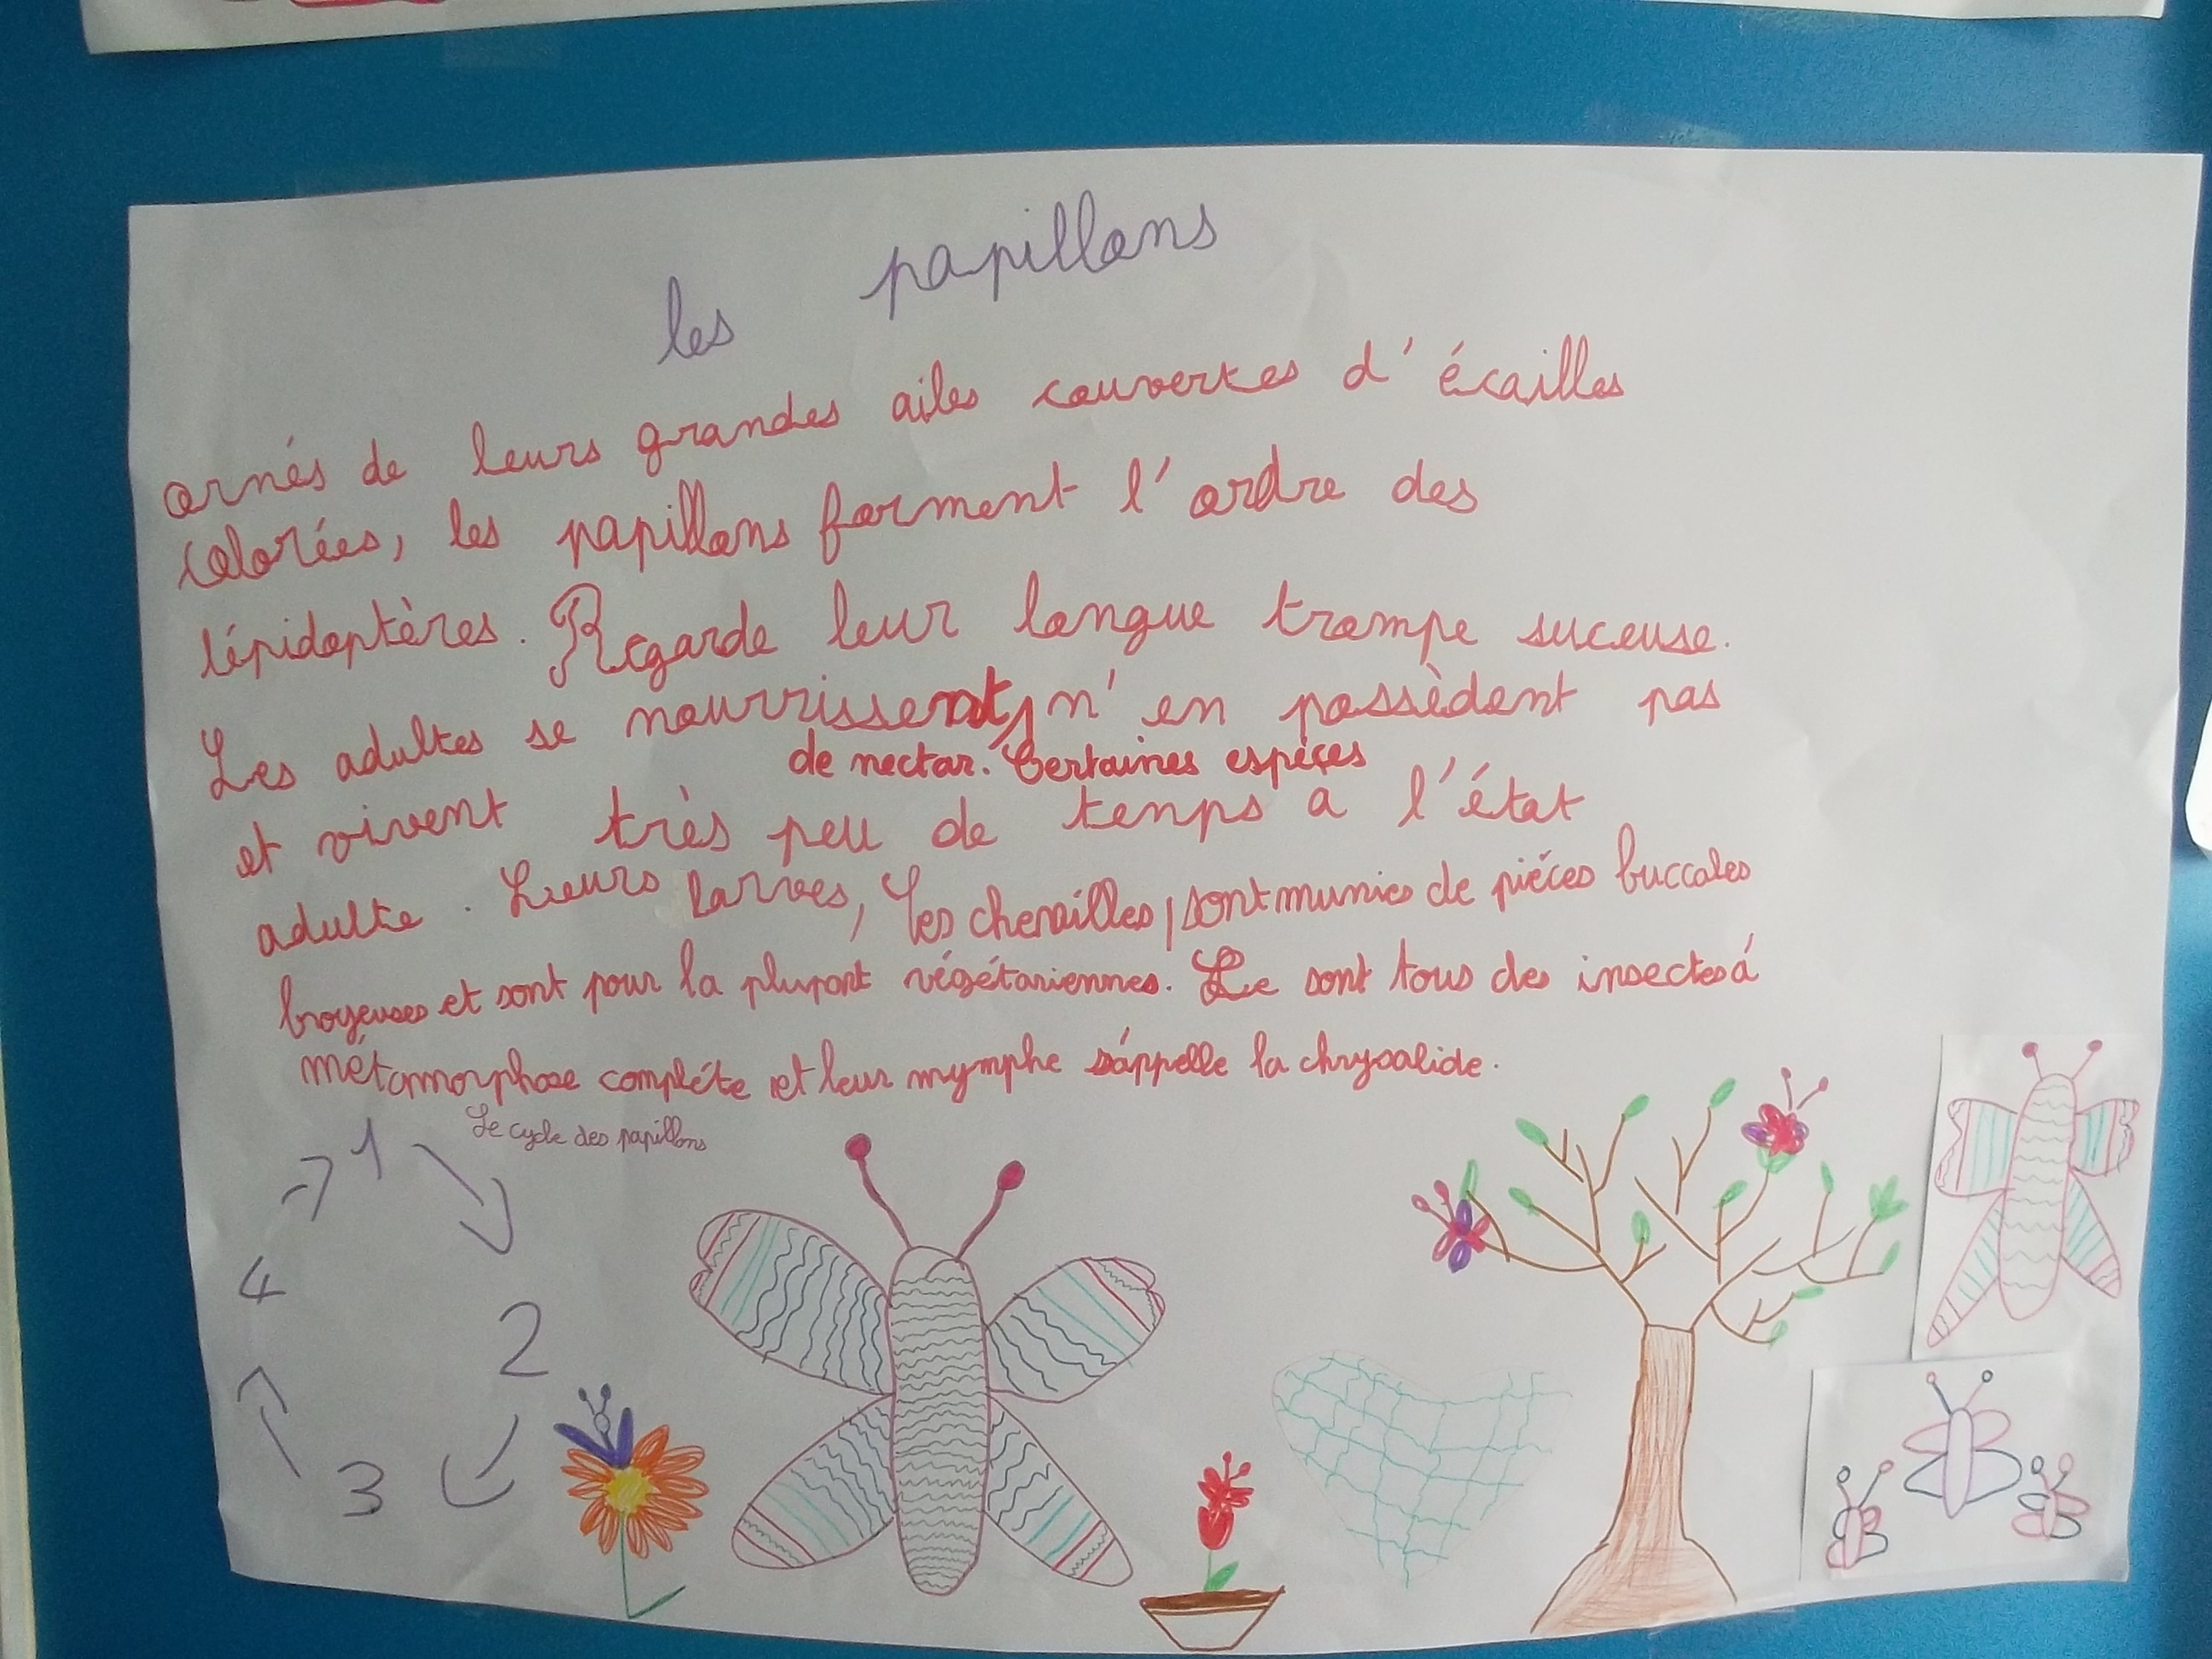 les papillons
ornés de leurs grandes ailes couvertes d'écailles
colorées, les papillons forment l'ordre des
lépidoptères. Regarde leur langue trompe suceuse.
Les adultes se nourrissent, n'en possèdent pas
de nectar. Certaines espèces
et vivent très peu de temps a l'état
adulte. Leurs larves, les chenilles, sont munies de piéces buccales
broyeuses et sont pour la plupart végétariennes. Ce sont tous des insectes á
métamorphose compléte et leur nymphe s'appelle la chrysalide.
Le cycle des papillons
1
4
2
3